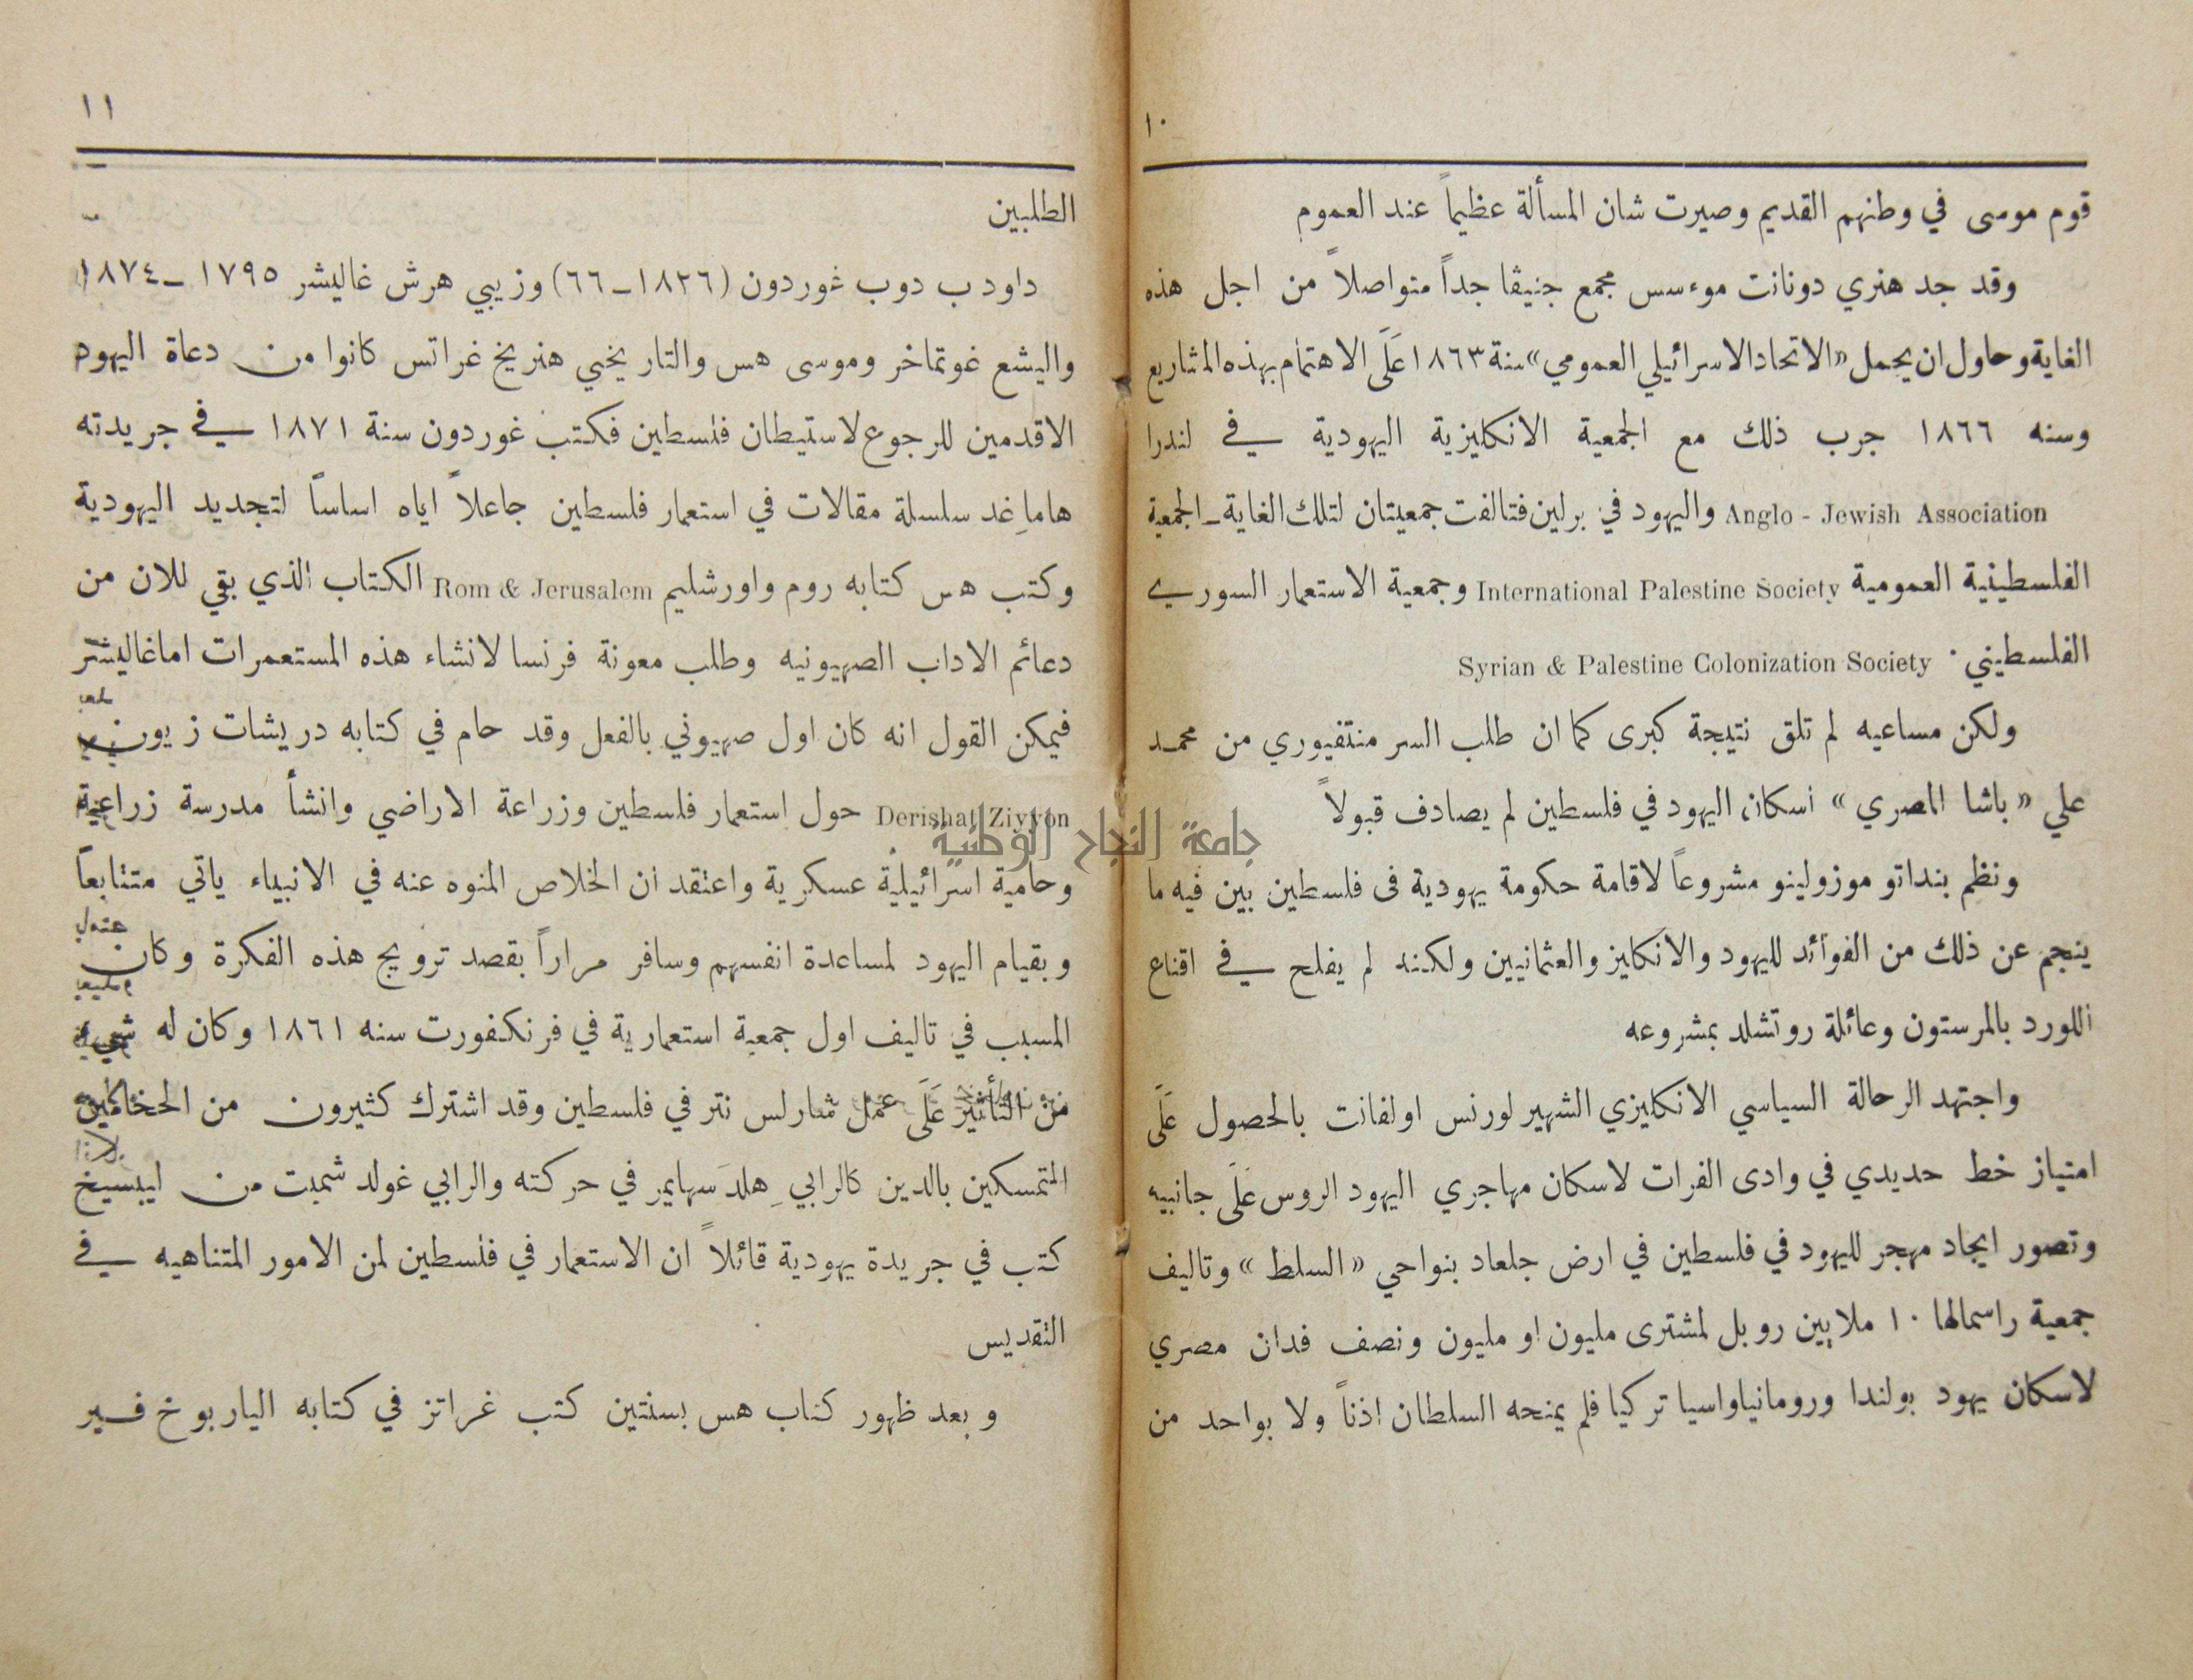 ١٠
قوم موسى في وطنهم القديم وصيرت شان المسألة عظيماً عند العموم
وقد جد هنري دونانت موءسس مجمع جنيڤا جداً متواصلاً من اجل هذه
الغاية وحاول ان يحمل «الاتحاد الاسرائيلي العمومي» سنة ١٨٦٣ عَلَى الاهتمام بهذه المشاريع
وسنه ١٨٦٦ جرب ذلك مع الجمعية الانكليزية اليهودية في لندرا
Anglo - Jewish Association واليهود في برلين فتالفت جمعيتان لتلك الغاية ـ الجمعية
الفلسطينية العمومية International Palestine Society وجمعية الاستعمار السوري
الفلسطيني ٠ Syrian & Palestine Colonization Society
ولكن مساعيه لم تلق نتيجة كبرى كما ان طلب السر منتفيوري من محمد
علي «باشا المصري» اسكان اليهود في فلسطين لم يصادف قبولاً
ونظم بنداتو موزولينو مشروعاً لاقامة حكومة يهودية فى فلسطين بين فيه ما
ينجم عن ذلك من الفوائد لليهود والانكليز والعثمانيين ولكنه لم يفلح في اقناع
اللورد بالمرستون وعائلة روتشلد بمشروعه
واجتهد الرحالة السياسي الانكليزي الشهير لورنس اولفانت بالحصول عَلَى
امتياز خط حديدي في وادى الفرات لاسكان مهاجري اليهود الروس عَلَى جانبيه
وتصور ايجاد مهجر لليهود في فلسطين في ارض جلعاد بنواحي «السلط» وتاليف
جمعية راسمالها ١٠ ملايين روبل لمشترى مليون او مليون ونصف فدان مصري
لاسكان يهود بولندا ورومانيا واسيا تركيا فلم يمنحه السلطان اذناً ولا بواحد من
١١
الطلبين
داود ب دوب غوردون (١٨٢٦ـ٦٦) وزيبي هرش غاليشر ١٧٩٥ ـ ١٨٧٤
واليشع غوتماخر وموسى هس والتاريخي هنريخ غراتس كانوا من دعاة اليهود
الاقدمين للرجوع لاستيطان فلسطين فكتب غوردون سنة ١٨٧١ في جريدته
هاماغِد سلسلة مقالات في استعمار فلسطين جاعلاً اياه اساساً لتجديد اليهودية
وكتب هس كتابه روم واورشليم Rom & Jerusalem الكتاب الذي بقي للان من
دعائم الاداب الصهيونيه وطلب معونة فرنسا لانشاء هذه المستعمرات اما غاليشر
فيمكن القول انه كان اول صهيوني بالفعل وقد حام في كتابه دريشات زيون
Derishat Ziyyon حول استعمار فلسطين وزراعة الاراضي وانشأ مدرسة زراعية
جامعة النجاح الوطنية
وحامية اسرائيلية عسكرية واعتقد ان الخلاص المنوه عنه في الانبياء ياتي متتابعاً
وبقيام اليهود لمساعدة انفسهم وسافر مراراً بقصد ترويج هذه الفكرة وكان
المسبب في تاليف اول جمعية استعمارية في فرنكفورت سنه ١٨٦١ وكان له شيء
من التأثير عَلَى عمل شارلس نتر في فلسطين وقد اشترك كثيرون من الحخامين
المتمسكين بالدين كالرابي هلدسهايمر في حركته والرابي غولد شمبت من ليبسيخ
كتب في جريدة يهودية قائلاً ان الاستعمار في فلسطين لمن الامور المتناهيه في
التقديس
وبعد ظهور كتاب هس بسنتين كتب غراتز في كتابه اليار بوخ فير